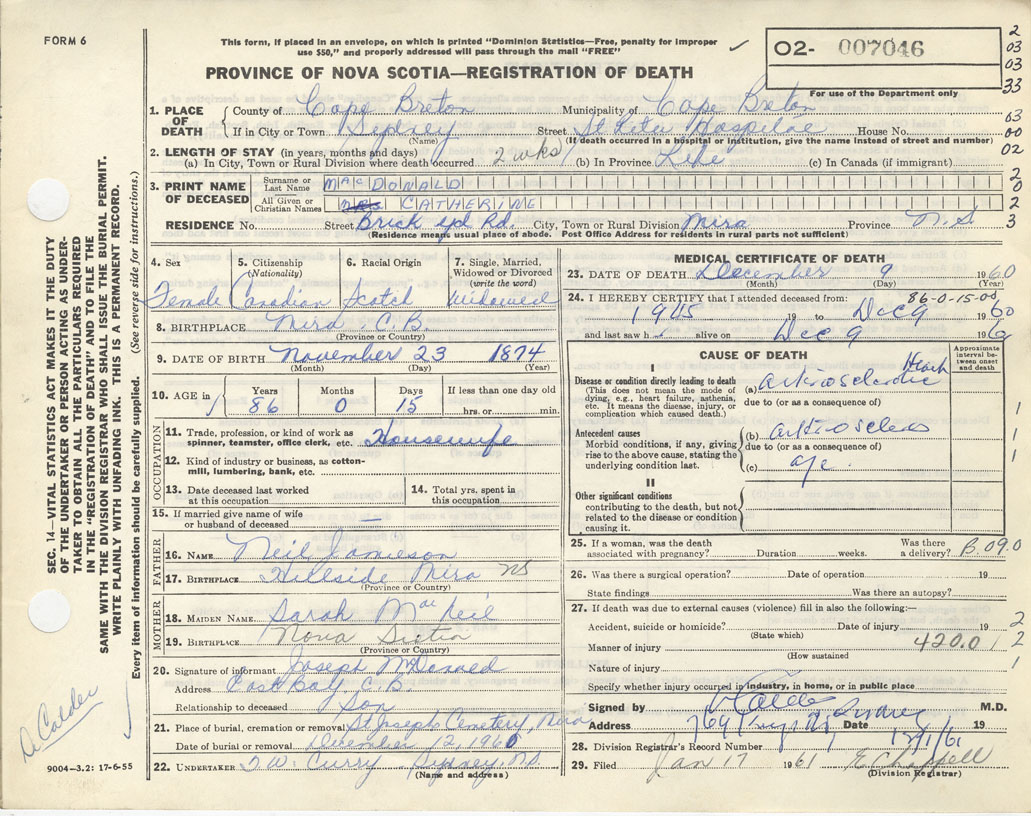 FORM 6
This form, if placed in an envelope, on which is printed "Dominion Statistics—Free, penalty for improper
use $50," and properly addressed will pass through the mail "FREE"
PROVINCE OF NOVA SCOTIA—REGISTRATION OF DEATH
02- 007046
For use of the Department only
2
03
03
33
1. PLACE OF DEATH
County of Cape Breton Municipality of Cape Breton
If in City or Town Sydney Street House No.
(Name) (If death occurred in a hospital or institution, give the name instead of street and number)
63
00
02
2. LENGTH OF STAY (in years, months and days)
(a) In City, Town or Rural Division where death occurred 2 wks (b) In Province Life (c) In Canada (if immigrant)
3. PRINT NAME OF DECEASED
Surname or Last Name MacDONALD
All Given or Christian Names Mrs CATHERINE
2
0
2
3
RESIDENCE No. Street Brick yd Rd. City, Town or Rural Division Mira Province N.S
(Residence means usual place of abode. Post Office Address for residents in rural parts not sufficient)
4. Sex
Female
5. Citizenship
(Nationality)
Canadian
6. Racial Origin
Scotch
7. Single, Married,
Widowed or Divorced
(write the word)
Widowed
8. BIRTHPLACE Mira C.B.
(Province or Country)
9. DATE OF BIRTH November 23 1874
(Month) (Day) (Year)
10. AGE in
Years Months Days If less than one day old
86 0 15 hrs. or min.
OCCUPATION
11. Trade, profession, or kind of work as
spinner, teamster, office clerk, etc. Housewife
12. Kind of industry or business, as cotton-
mill, lumbering, bank, etc.
13. Date deceased last worked
at this occupation
14. Total yrs. spent in
this occupation
15. If married give name of wife
or husband of deceased —
FATHER
16. NAME Neil Jamieson
17. BIRTHPLACE Hillside Mira NS
(Province or Country)
MOTHER
18. MAIDEN NAME Sarah MacNeil
19. BIRTHPLACE Nova Scotia
(Province or Country)
20. Signature of informant Joseph
Address East Bay, C.B.
Relationship to deceased Son
21. Place of burial, cremation or removal St Joseph Cemetery, Mira
Date of burial or removal December 12, 1960
22. UNDERTAKER Curry Sydney, N.S.
(Name and address)
MEDICAL CERTIFICATE OF DEATH
23. DATE OF DEATH December 9 1960
(Month) (Day)
86-0-15-00
24. I HEREBY CERTIFY that I attended deceased from:
1945 19 to Dec 9 1960
and last saw h alive on Dec 9 196
CAUSE OF DEATH
Approximate
interval be-
tween onset
and death
I
Disease or condition directly leading to death
(This does not mean the mode of
dying, e.g., heart failure, asthenia,
etc. It means the disease, injury, or
complication which caused death.)
(a) Heart
due to (or as a consequence of)
1
Antecedent causes
Morbid conditions, if any, giving
rise to the above cause, stating the
underlying condition last.
(b)
due to (or as a consequence of)
(c) age.
1
1
II
Other significant conditions
contributing to the death, but
not related to the disease or condition
causing it.
25. If a woman, was the death
associated with pregnancy? Duration weeks. Was there
a delivery? B.09.0
26. Was there a surgical operation? Date of operation 19
State findings Was there an autopsy?
27. If death was due to external causes (violence) fill in also the following:—
Accident, suicide or homicide? Date of injury 19
(State which)
Manner of injury 420.0
(How sustained
Nature of injury
2
2
1
Specify whether injury occurred in industry, in home, or in public place
Signed by M.D.
Address Date 19
28. Division Registrar's Record Number
29. Filed Jan 17 1961
(Division Registrar)
SEC. 14—VITAL STATISTICS ACT MAKES IT THE DUTY
OF THE UNDERTAKER OR PERSON ACTING AS UNDER-
TAKER TO OBTAIN ALL THE PARTICULARS REQUIRED
IN THE "REGISTRATION OF DEATH" AND TO FILE THE
SAME WITH THE DIVISION REGISTRAR WHO SHALL ISSUE THE BURIAL PERMIT.
WRITE PLAINLY WITH UNFADING INK. THIS IS A PERMANENT RECORD.
Every item of information should be carefully supplied. (See reverse side for instructions.)
Calder
9004—3.2: 17-6-55